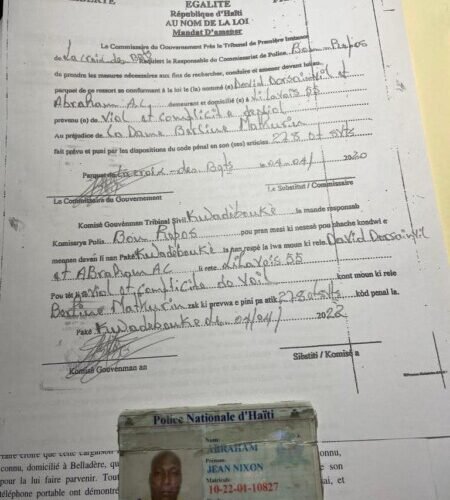 LIBERTE EGALITE
République d'Haïti
AU NOM DE LA LOI
Mandat D'amener
Le Commissaire du Gouvernement Près le Tribunal de Première Instance
de La croix des Bqts Requiert le Responsable du Commissariat de Police. Bon Repos
de prendre les mesures nécessaires aux fins de rechercher, conduire et amener devant lui au
parquet de ce ressort se conformant à la loi le (la) nommé (e) David Dorsainvil et
Abraham A.C demeurant et domicilié (e) à Lilavois 55
prévenu (e) de Viol et complicité de viol
Au préjudice de La Dame Berline Mathurin
fait prévu et puni par les dispositions du code pénal en son (ses) article(s) 278 et svts
Parquet de Croix-des-Bqts 04-04/2020
Le Commissaire du Gouvernement Le Substitut / Commissaire
Komisè Gouvènman Tribinal Sivil Kwadèboukè la mande responsab
Komisarya Polis Bon Repos pou pran mezi ki nesesè pou chache kondwi e
mennen devan li nan Pakè Kwadèboukè la nan respè la lwa moun ki rele David Dorsainvil
et Abraham A.C ki rete Lilavois 55
Pou tèt Viol et complicité de Viol kont moun ki rele
Berline Mathurin zak ki prevwa e pini pa atik 278 kòd penal la.
Pakè Kwadebouke 04/04/ 2022
Komisè Gouvènman an Sibstiti / Komisè a
Police Nationale d'Haïti
Nom:
ABRAHAM
Prénom:
JEAN NIXON
Matricule:
10-22-01-10827
faire croire que cette cargaison
connu, domicilié à Belladère,
pour la lui faire parvenir. Tout
téléphone portable ont démontré
connu,
son
mai, et